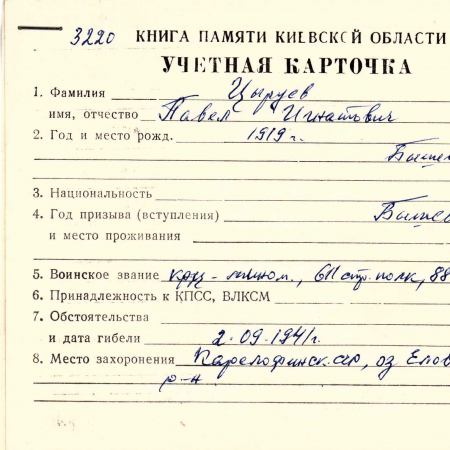 3220 КНИГА ПАМЯТИ КИЕВСКОЙ ОБЛАСТИ
УЧЕТНАЯ КАРТОЧКА
1. Фамилия Цыруев
имя, отчество Павел Игнатович
2. Год и место рожд. 1919 г.
3. Национальность
4. Год призыва (вступления)
и место проживания
5. Воинское звание 611 стр. полк, 88
6. Принадлежность к КПСС, ВЛКСМ
7. Обстоятельства
и дата гибели 2.09.1941г.
8. Место захоронения Карелофинск. ССР, оз
р-н